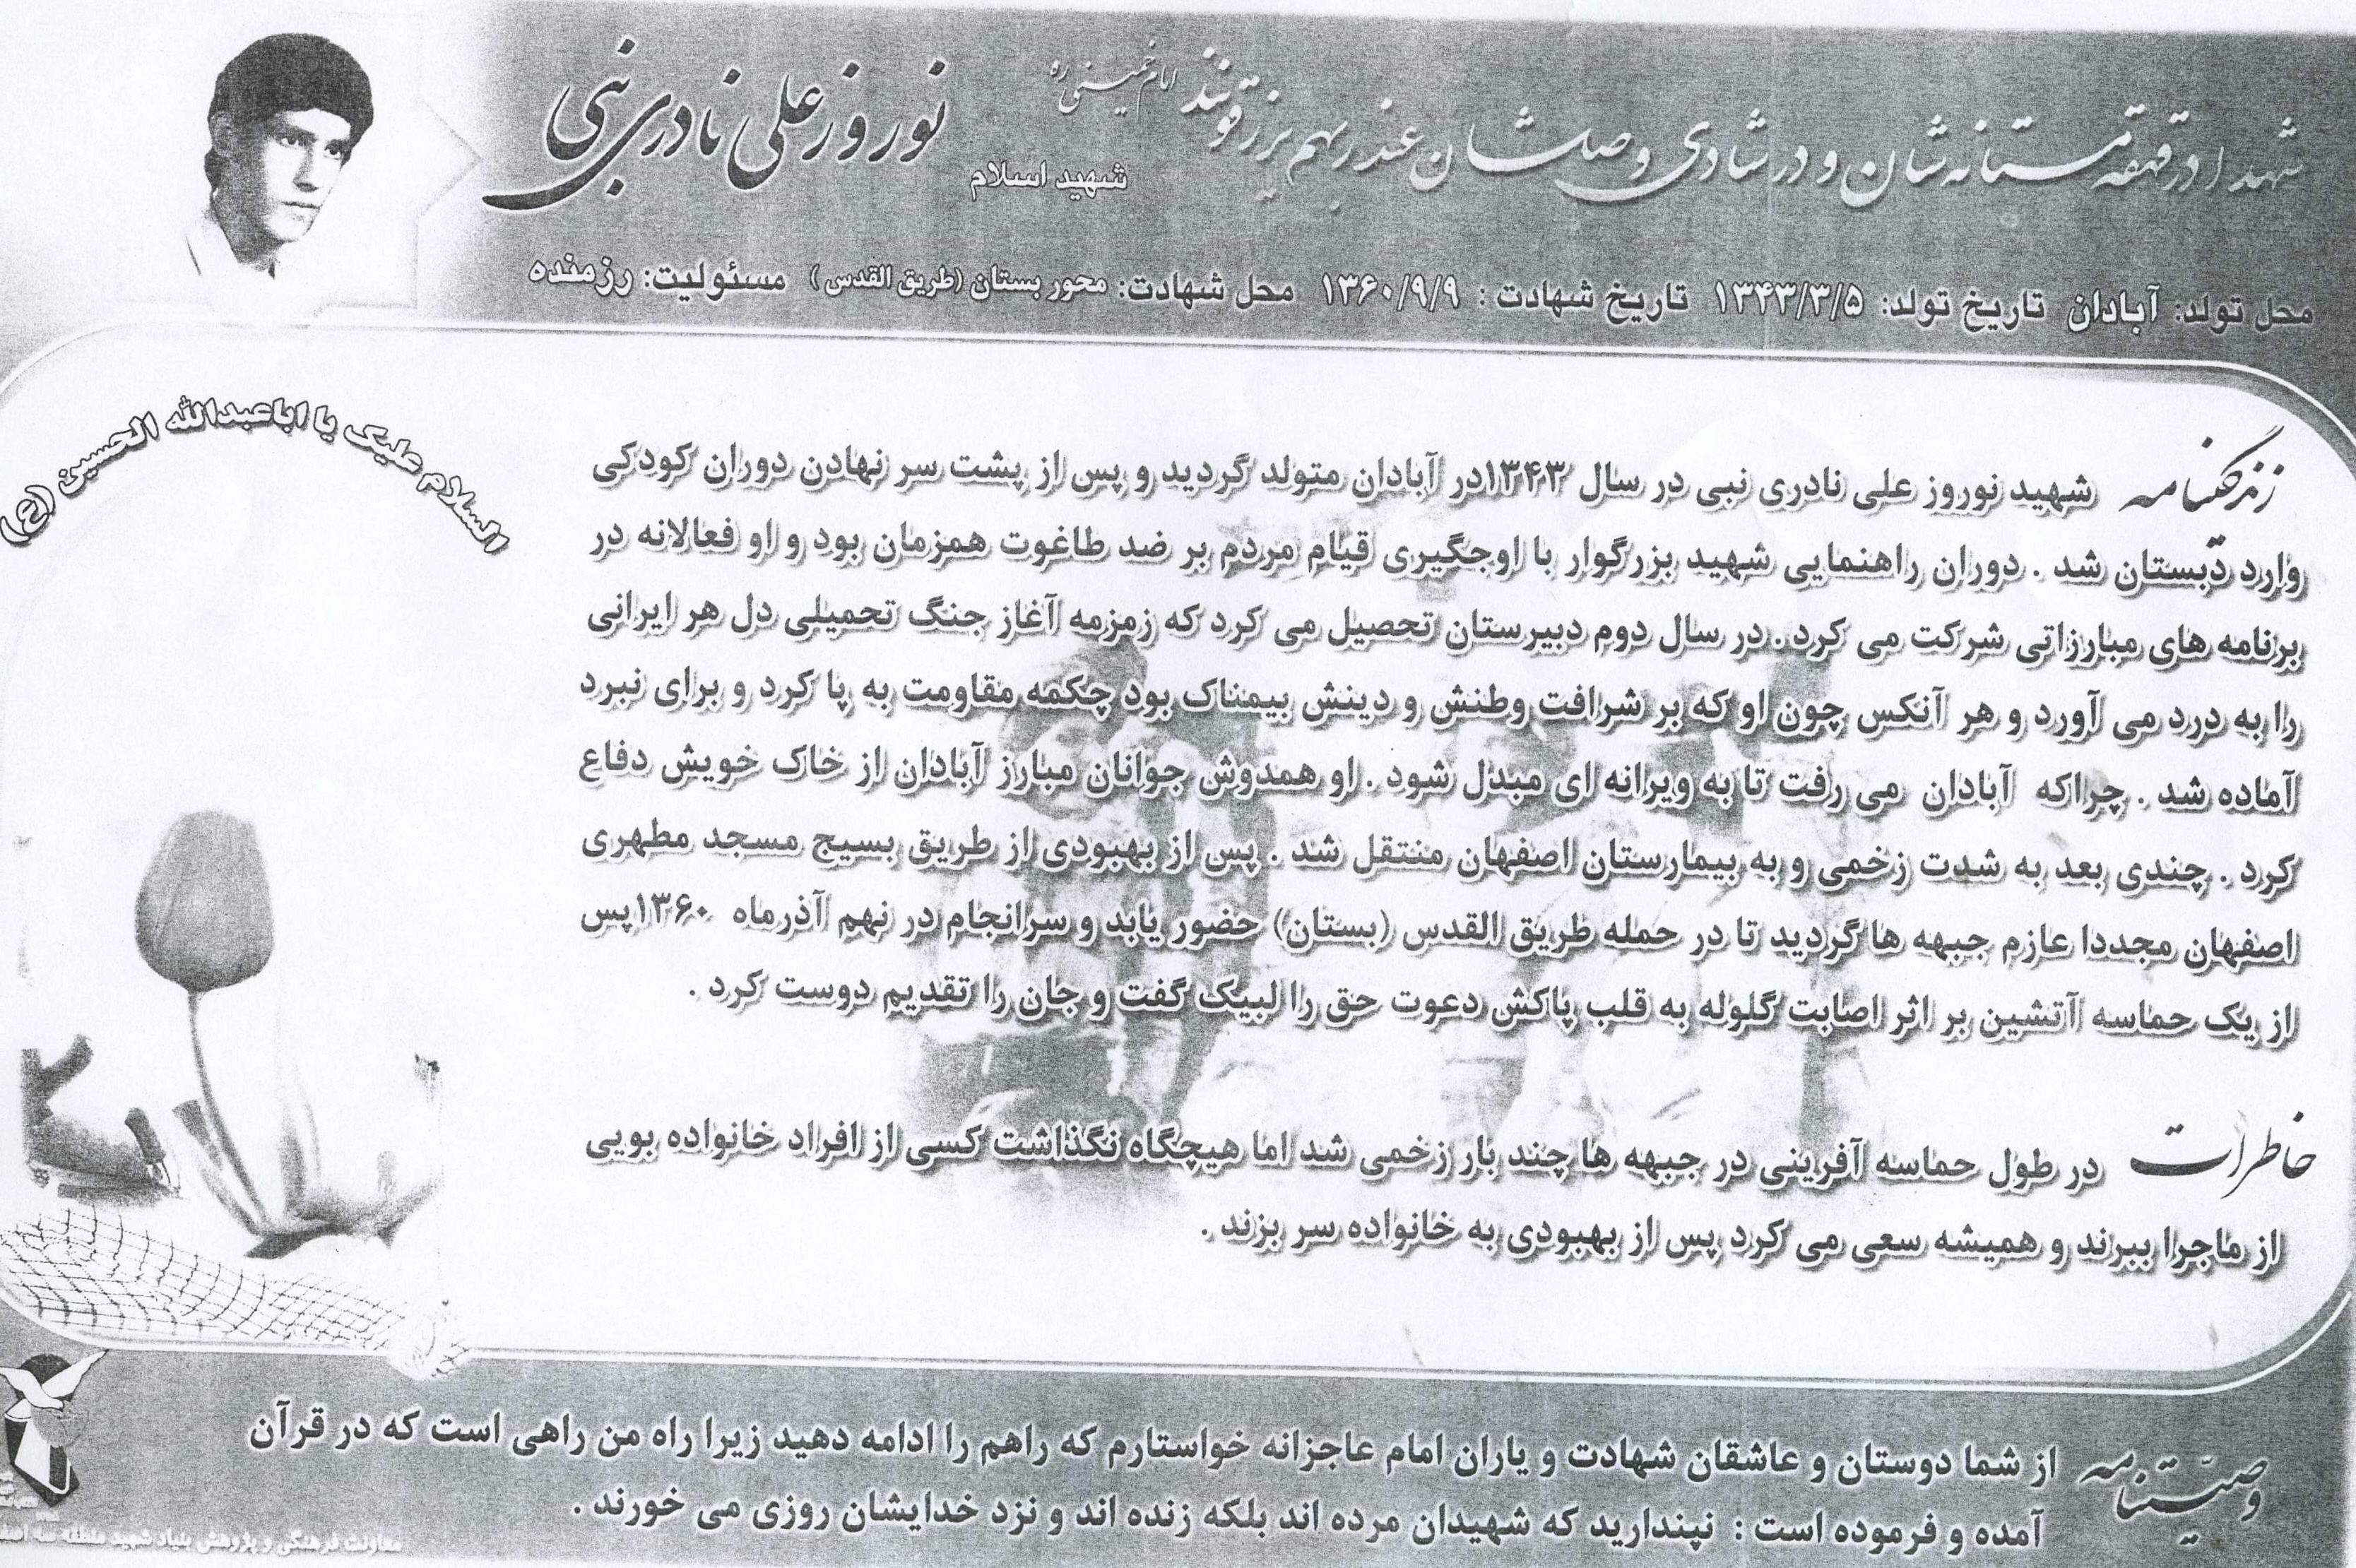 شهدا در قهقهه مستانه شان و در شادی وصلشان عند ربهم یرزقونند امام خمینی ره
شهید اسلام
نوروز علی نادری نبی
محل تولد: آبادان تاریخ تولد: ۱۳۴۳/۳/۵ تاریخ شهادت : ۱۳۶۰/۹/۹ محل شهادت: محور بستان (طریق القدس ) مسئولیت: رزمنده
السلام علیک یا اباعبدالله الحسین (ع)
زندگینامه شهید نوروز علی نادری نبی در سال ۱۳۴۳در آبادان متولد گردید و پس از پشت سر نهادن دوران کودکی
وارد دبستان شد . دوران راهنمایی شهید بزرگوار با اوجگیری قیام مردم بر ضد طاغوت همزمان بود و او فعالانه در
برنامه های مبارزاتی شرکت می کرد . در سال دوم دبیرستان تحصیل می کرد که زمزمه آغاز جنگ تحمیلی دل هر ایرانی
را به درد می آورد و هر آنکس چون او که بر شرافت وطنش و دینش بیمناک بود چکمه مقاومت به پا کرد و برای نبرد
آماده شد . چراکه آبادان می رفت تا به ویرانه ای مبدل شود . او همدوش جوانان مبارز آبادان از خاک خویش دفاع
کرد . چندی بعد به شدت زخمی و به بیمارستان اصفهان منتقل شد . پس از بهبودی از طریق بسیج مسجد مطهری
اصفهان مجددا عازم جبهه ها گردید تا در حمله طریق القدس (بستان) حضور یابد و سرانجام در نهم آذرماه ۱۳۶۰پس
از یک حماسه آتشین بر اثر اصابت گلوله به قلب پاکش دعوت حق را لبیک گفت و جان را تقدیم دوست کرد .
خاطرات در طول حماسه آفرینی در جبهه ها چند بار زخمی شد اما هیچگاه نگذاشت کسی از افراد خانواده بویی
از ماجرا ببرند و همیشه سعی می کرد پس از بهبودی به خانواده سر بزند .
وصیتنامه از شما دوستان و عاشقان شهادت و یاران امام عاجزانه خواستارم که راهم را ادامه دهید زیرا راه من راهی است که در قرآن
آمده و فرموده است : نپندارید که شهیدان مرده اند بلکه زنده اند و نزد خدایشان روزی می خورند .
معاونت فرهنگی و پژوهش بنیاد شهید منطقه سه